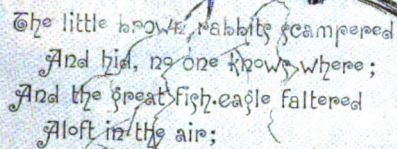 The little brown rabbits scampered
And hid, no one knows where;
And the great fish-eagle faltered
Aloft in the air;